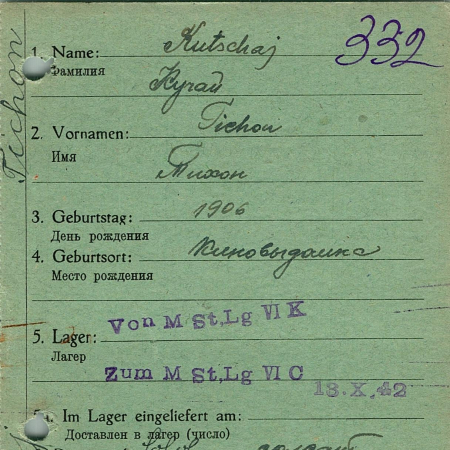 332
Tichon
1. Name: Kutschaj
Фамилия
Кучай
2. Vornamen: Tichon
Имя
Тихон
3. Geburtstag: 1906
День рождения
4. Geburtsort:
Место рождения
Von M St,Lg VI K
5. Lager:
Лагер
Zum M St,Lg VI C
13.X.42
5a. Im Lager eingeliefert am:
Доставлен в лагер (число)
солдат